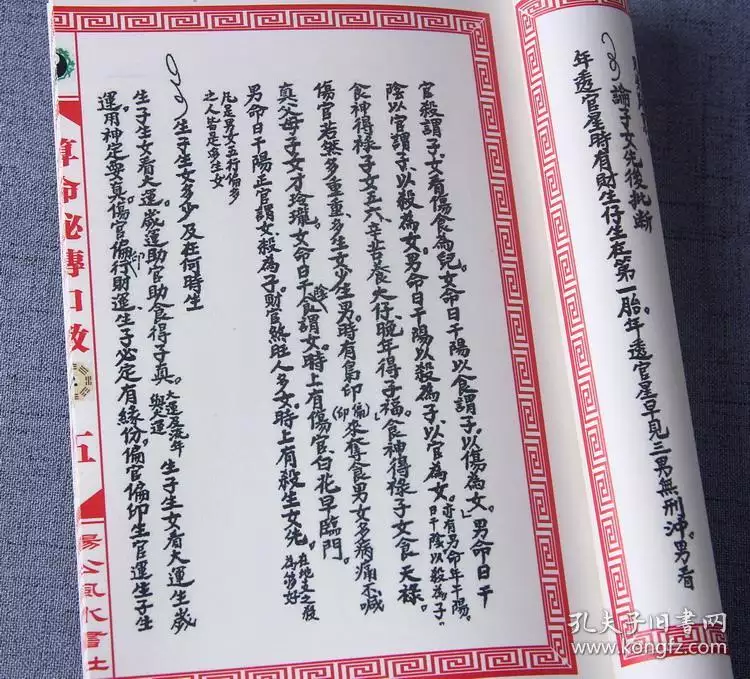 論子女先後批斷
年透官星時有財生仔生在第一胎。年透官星早見三男無刑沖。男看
官殺謂子女看傷食為兒。女命日干陽以食謂子。以傷為女。」男命日干
陰以官謂子以殺為女。男命日干陽以殺為子以官為女。亦有男命年干陽。
日干陰以殺為子。
食神得祿子女五六。辛苦養大仔。晚年得子福。食神得祿子女食天祿。
傷官若然多重重、多生女少生男。時有梟印(偏印)來奪食男女多病痛不喊
真父母子女才玲瓏。女命日干陰食謂女。時上有傷官、白花早臨門。
男命日干陽正官謂女殺為子財官煞旺人多女。時上有殺生女先。在地生之殺
為第好
凡是男女五行偏多
之人皆定多生女
生子生女多少及在何時生
生子生女看大運。歲運助官助食得子真。大運屋流年
與大運 生子生女看大運生歲
運用神定與真。傷官偏印行財運生子必定有緣份。偏官偏印生官運生子生
算命秘傳口教
五
楊公風水書社
孔夫子旧书网
www.kongfz.com